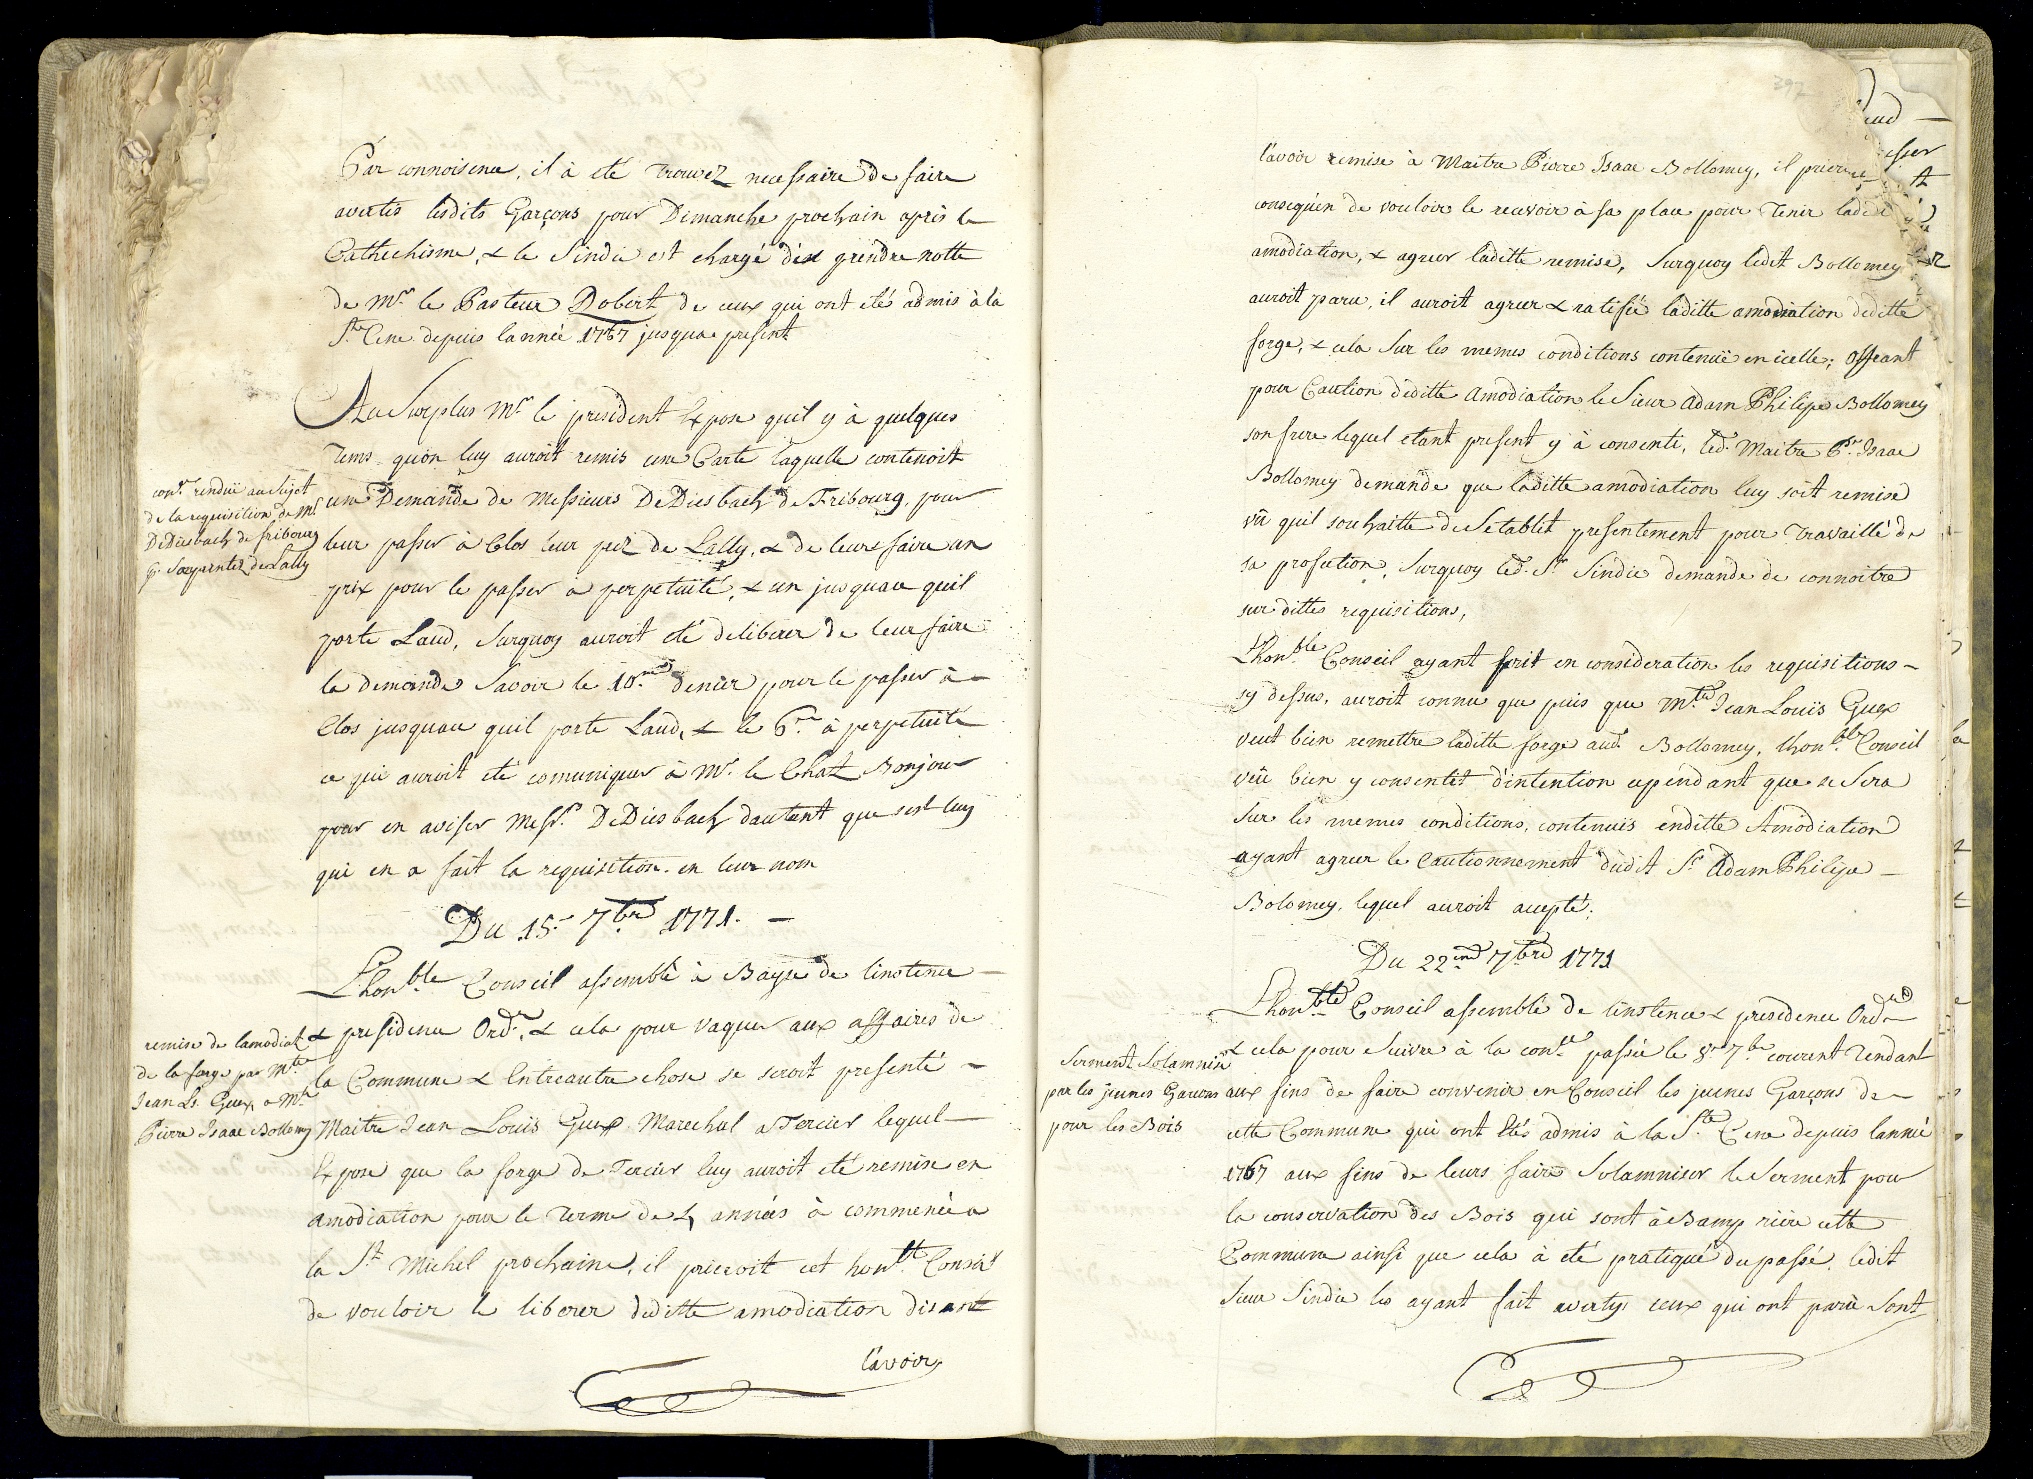 Par connoisence, il à eté trouvez necessaire de faire
avertis lesdits Garçons pour Dimanche prochain après le
Cathechisme, & le Sindic est chargé dex prendre notte
de Mr. le Pasteur Dobert de ceux qui ont etés admis à la
Ste. Cene depuis lannée 1767 jusquau present
Au Surplus Mr. le president Expose quil y à quelques
Tems quon luy auroit remis une Carte laquelle contenoit
con.ce rendue au Sujet
de la requisition de Mrs
DeDiesbach de fribourg
une Demande de Messieurs DeDiesbach de Fribourg, pour
leur passer à Clos leur prez de Lally, & de leurs faire un
prix pour le passer à perpetuité, & un jusquau quil
porte Laud, Surquoy auroit eté deliberer de leur faire
la demande Savoir le 10.me denier pour le passer à
Clos jusquau quil porte Laud, & le 6.me à perpetuité
ce qui auroit eté comuniquer à Mr. le Chat. Bonjour
pour en aviser Messrs. DeDiesbach dautant que sest luy
qui en a fait la requisition en leur nom
Du 15.e 7bre 1771.
Lhonble Conseil assemblé à Bayse de linstence
remise de lamodiat.
de la forge par Mtre
Jean Ls. Guex a Mtre
Pierre Isaac Bollomey
& presidence Ordre, & cela pour vaquer aux affaires de
la Commune & Entreautre chose se seroit presenté
Maitre Jean Louis Guex Marechal a Tercier lequel
Expose que la forge de Tercier luy auroit eté remise en
amodiation pour le terme de 4 années à commencé a
la St. Michel prochaine, il prieroit cet honble. Conseil
de vouloir le liberer deditte amodiation disant
l'avoir
397
l'avoir remise à Maitre Pierre Isaac Bollomey, il prieroit
consequen de vouloir le recevoir à sa place pour tenir laditte
amodiation, & agreer laditte remise, Surquoy ledit Bollomey
auroit paru, il auroit agreer & ratifié laditte amodiation deditte
forge, & cela Sur les memes conditions contenuë en icelle; offrant
pour Caution deditte Amodiation le Sieur Adam Philipe Bollomey
son frere lequel etant present y à consenti, led. Maitre Pre. Isaac
Bollomey demande que laditte amodiation luy soit remise
vû quil souhaitte de Setablit presentement pour travaillé de
sa profestion, Surquoy led. Sr. Sindic demande de connoitre
sur dittes requisitions,
Lhonble. Conseil ayant prit en consideration les requisitions
sy dessus, auroit connu que puis que Mtre Jean Louis Guex
veut bien remettre laditte forge aud. Bollomey, lhonble. Conseil
veü bien y consentet d'intention cependant que se Sera
Sur les memes conditions, contenuës enditte Amodiation
ayant agreer le Cautionnement dudit Sr. Adam Philipe
Bolomey, lequel auroit accepté.
Du 22me 7bre 1771
Lhonble. Conseil assemblé de linstence & presidence Ordre
Serment Solamnisé
par les jeunes Garcons
pour les Bois
& cela pour Suivre à la con.ce passée le 8e 7bre courent tendant
aux fins de faire convenir en Conseil les jeunes Garçons de
cette Commune qui ont Etés admis à la Ste. Cene depuis lannée
1767 aux fins de leurs faire Solamniser le Serment pour
la conservation des Bois qui sont à Bamp riere cette
Commune ainsi que cela à eté pratiqué du passé, ledit
Sieur Sindic les ayant fait averty ceux qui ont parü Sont